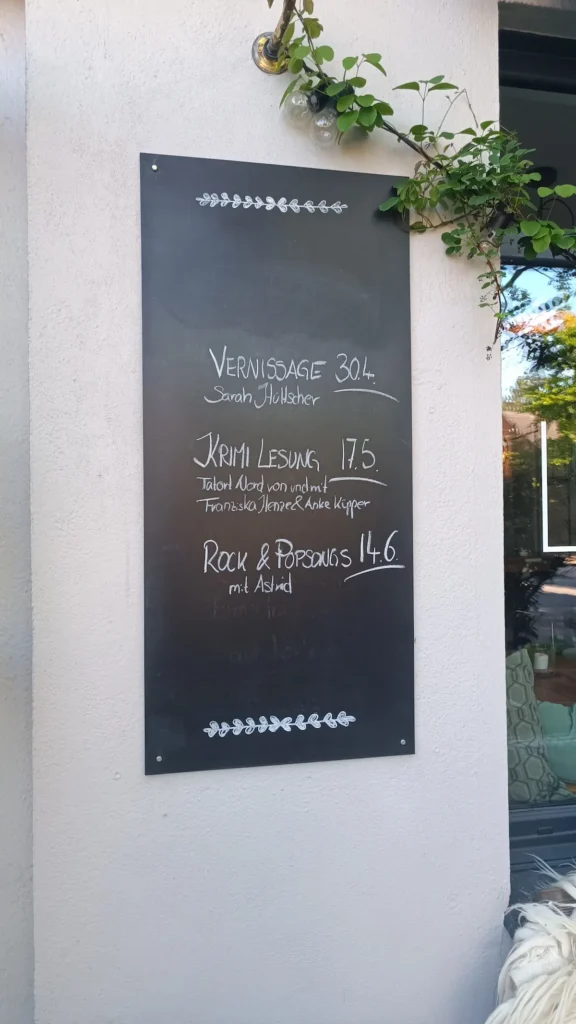 VERNISSAGE 30.4.
Sarah Hüttscher
KRIMI LESUNG 17.5.
Tatort Nord von und mit
Franziska Henze & Anke Küpper
ROCK & POPSONGS 14.6.
mit Astrid